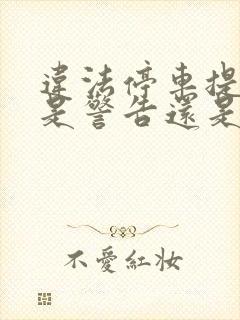 違法停車提
是警告還是
不愛紅妝